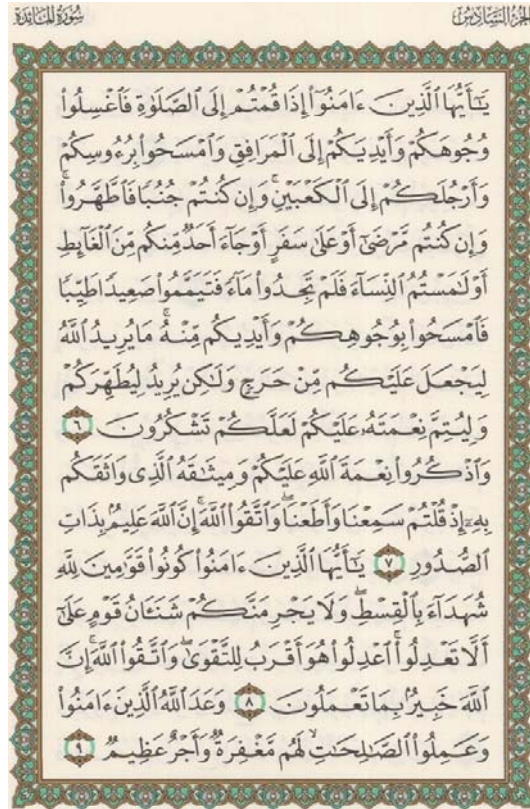 الجزء السادس
سورة المائدة
يَٰٓأَيُّهَا ٱلَّذِينَ ءَامَنُوٓا۟ إِذَا قُمْتُمْ إِلَى ٱلصَّلَوٰةِ فَٱغْسِلُوا۟
وُجُوهَكُمْ وَأَيْدِيَكُمْ إِلَى ٱلْمَرَافِقِ وَٱمْسَحُوا۟ بِرُءُوسِكُمْ
وَأَرْجُلَكُمْ إِلَى ٱلْكَعْبَيْنِ ۚ وَإِن كُنتُمْ جُنُبًا فَٱطَّهَّرُوا۟ ۚ
وَإِن كُنتُم مَّرْضَىٰٓ أَوْ عَلَىٰ سَفَرٍ أَوْ جَآءَ أَحَدٌ مِّنكُم مِّنَ ٱلْغَآئِطِ
أَوْ لَٰمَسْتُمُ ٱلنِّسَآءَ فَلَمْ تَجِدُوا۟ مَآءً فَتَيَمَّمُوا۟ صَعِيدًا طَيِّبًا
فَٱمْسَحُوا۟ بِوُجُوهِكُمْ وَأَيْدِيكُم مِّنْهُ ۚ مَا يُرِيدُ ٱللَّهُ
لِيَجْعَلَ عَلَيْكُم مِّنْ حَرَجٍ وَلَٰكِن يُرِيدُ لِيُطَهِّرَكُمْ
وَلِيُتِمَّ نِعْمَتَهُۥ عَلَيْكُمْ لَعَلَّكُمْ تَشْكُرُونَ ٦
وَٱذْكُرُوا۟ نِعْمَةَ ٱللَّهِ عَلَيْكُمْ وَمِيثَٰقَهُ ٱلَّذِى وَاثَقَكُم
بِهِۦٓ إِذْ قُلْتُمْ سَمِعْنَا وَأَطَعْنَا ۖ وَٱتَّقُوا۟ ٱللَّهَ ۚ إِنَّ ٱللَّهَ عَلِيمٌۢ بِذَاتِ
ٱلصُّدُورِ ٧ يَٰٓأَيُّهَا ٱلَّذِينَ ءَامَنُوا۟ كُونُوا۟ قَوَّٰمِينَ لِلَّهِ
شُهَدَآءَ بِٱلْقِسْطِ ۖ وَلَا يَجْرِمَنَّكُمْ شَنَـَٔانُ قَوْمٍ عَلَىٰٓ
أَلَّا تَعْدِلُوا۟ ۚ ٱعْدِلُوا۟ هُوَ أَقْرَبُ لِلتَّقْوَىٰ ۖ وَٱتَّقُوا۟ ٱللَّهَ ۚ إِنَّ
ٱللَّهَ خَبِيرٌۢ بِمَا تَعْمَلُونَ ٨ وَعَدَ ٱللَّهُ ٱلَّذِينَ ءَامَنُوا۟
وَعَمِلُوا۟ ٱلصَّٰلِحَٰتِ ۙ لَهُم مَّغْفِرَةٌ وَأَجْرٌ عَظِيمٌ ٩